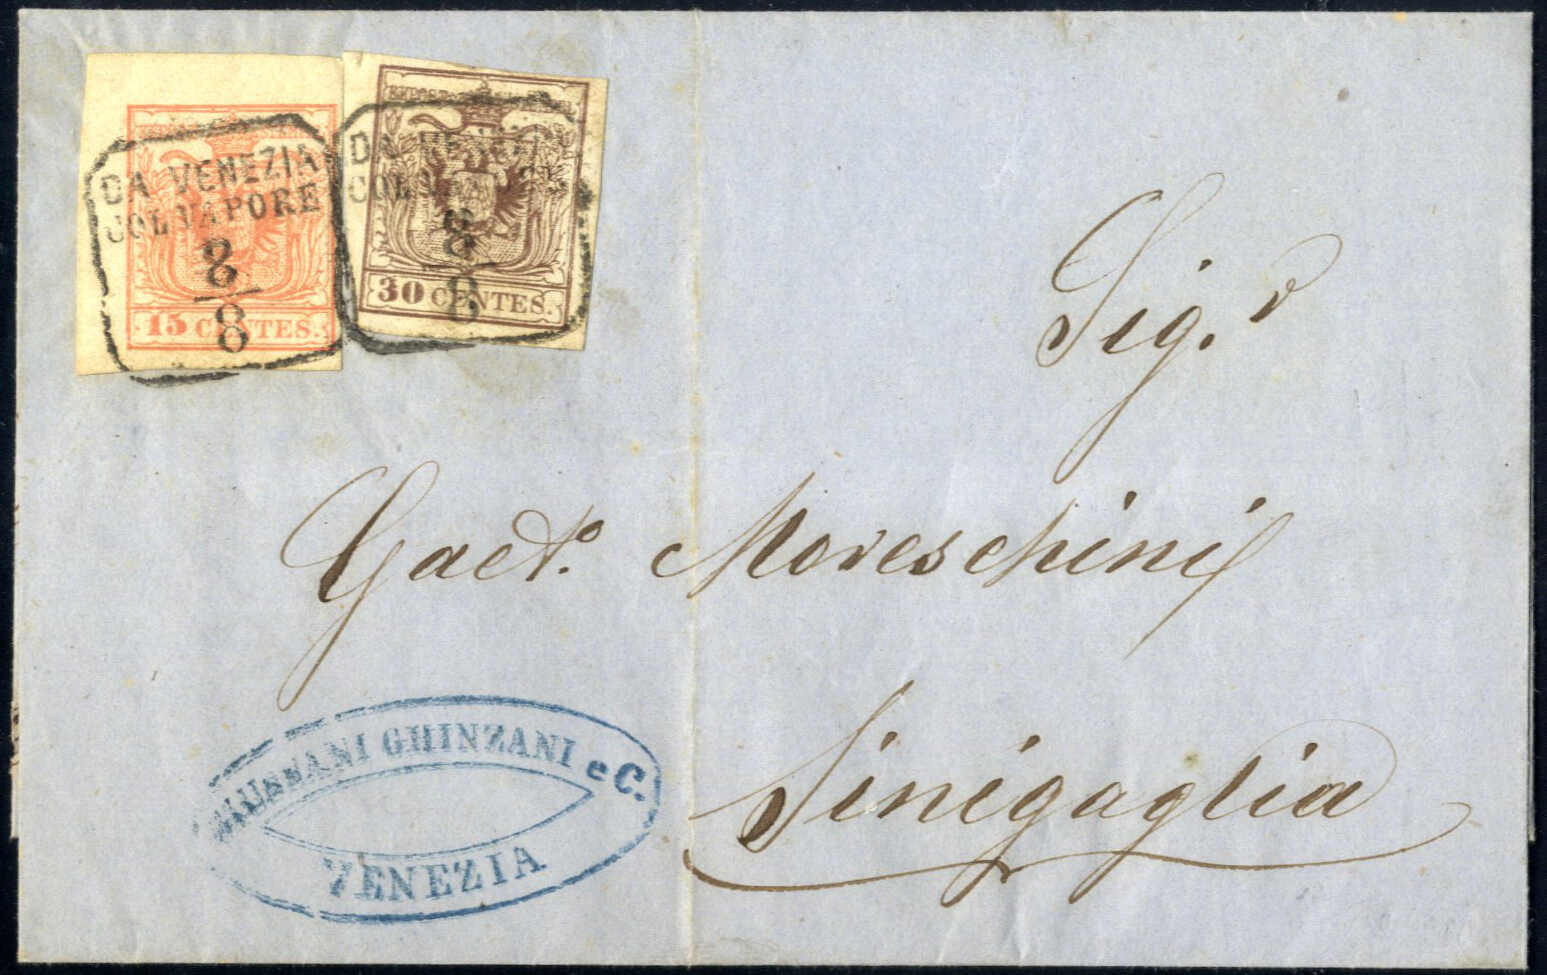 DA VENEZIA
COL VAPORE
8
8
15 CENTES.
DA VENEZIA
COL VAPORE
8
8
30 CENTES.
Sig.r
Gaet.o Moreschini
Sinigaglia
GHINZANI e C.
VENEZIA